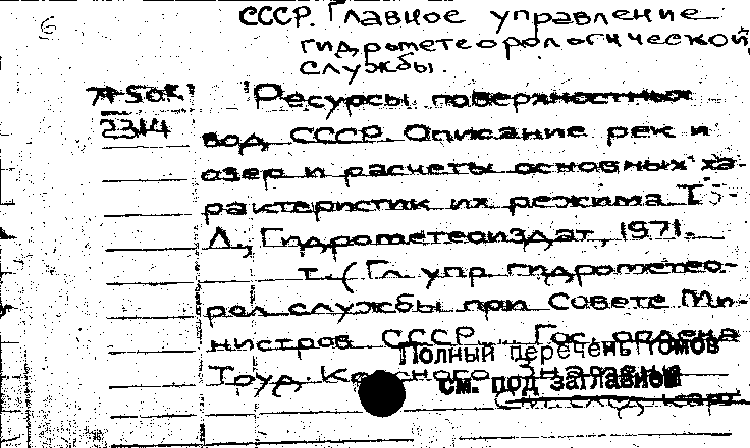 6
СССР. Главное управление
гидрометеорологической
службы.
71-50к
2314
Ресурсы поверхностных
вод СССР. Описание рек и
озер и расчеты основных ха-
рактеристик их режима. Т
Л., Гидрометеоиздат, 1971.
т. (Гл. упр. гидрометео-
рол. службы при Совете Ми-
нистров СССР... Гос. ордена
Труд. Красного Знамени
Полный перечень томов
см. под заглавием
См. след. карт.